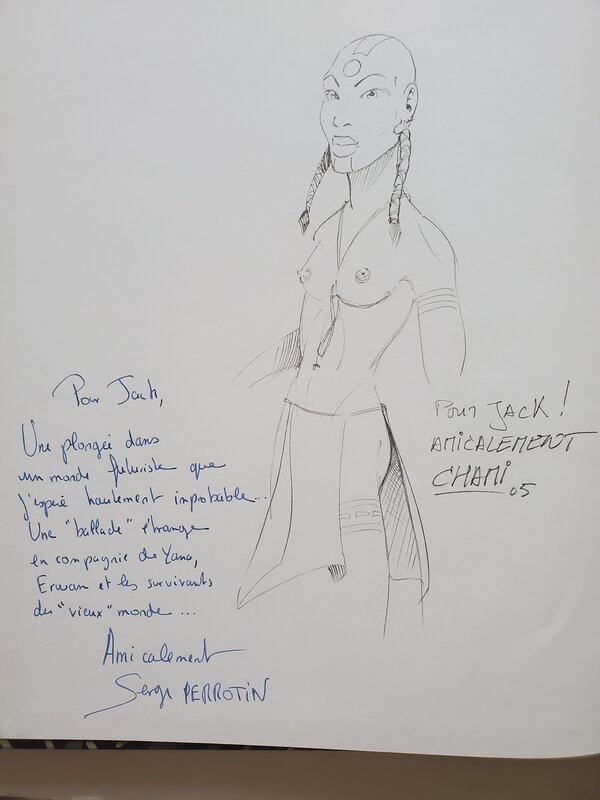 Pour Jack,
Une plongée dans
un monde futuriste que
j'espère hautement improbable...
Une "ballade" étrange
en compagnie de Yana,
Erwan et les survivants
du "vieux" monde ...
Amicalement
Serge PERROTIN
POUR JACK !
AMICALEMENT
CHAMI
05